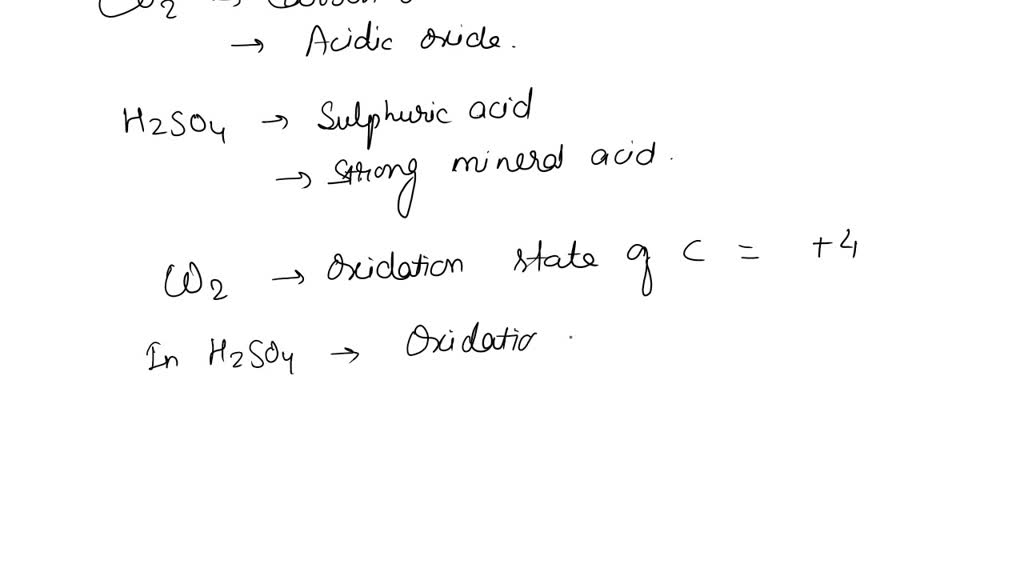 CO2 →
→ Acidic oxide.
H2SO4 → Sulphuric acid
→ Strong mineral acid.
CO2 → Oxidation state of C = +4
In H2SO4 → Oxidatio